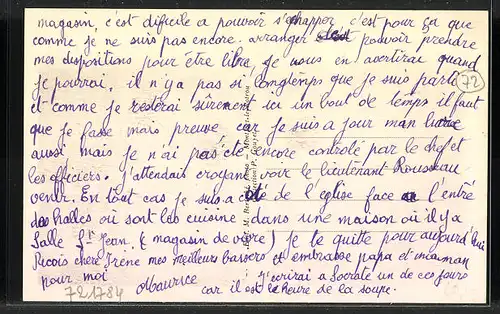 magasin, c'est dificile a pouvoir s'echapper c'est pour ça que
comme je ne suis pas encore arranger pouvoir prendre
mes dispositions pour être libre, je vous en avertirai quand
je pourrai, il n'y a pas si longtemps que je suis parti
72
et comme je resterai sûrement ici un bout de temps il faut
que je fasse mais preuve car je suis a jour man
aussi mais je n'ai pas été encore controlé par le chef et
les officiers. J'attendais croyant voir le lieutenant Rousseau
venir. En tout cas je suis a côté de l'église face a l'entré
des halles où sont les cuisine dans une maison où il y a
Salle Jean (magasin de vivre) je te quitte pour aujourd'hui
Reçois chère Irène mes meilleurs bassers et embrasse papa et maman
pour moi Maurice J'ecrirai a Socrate un de ces jours
car il est le heure de la soupe.
721784